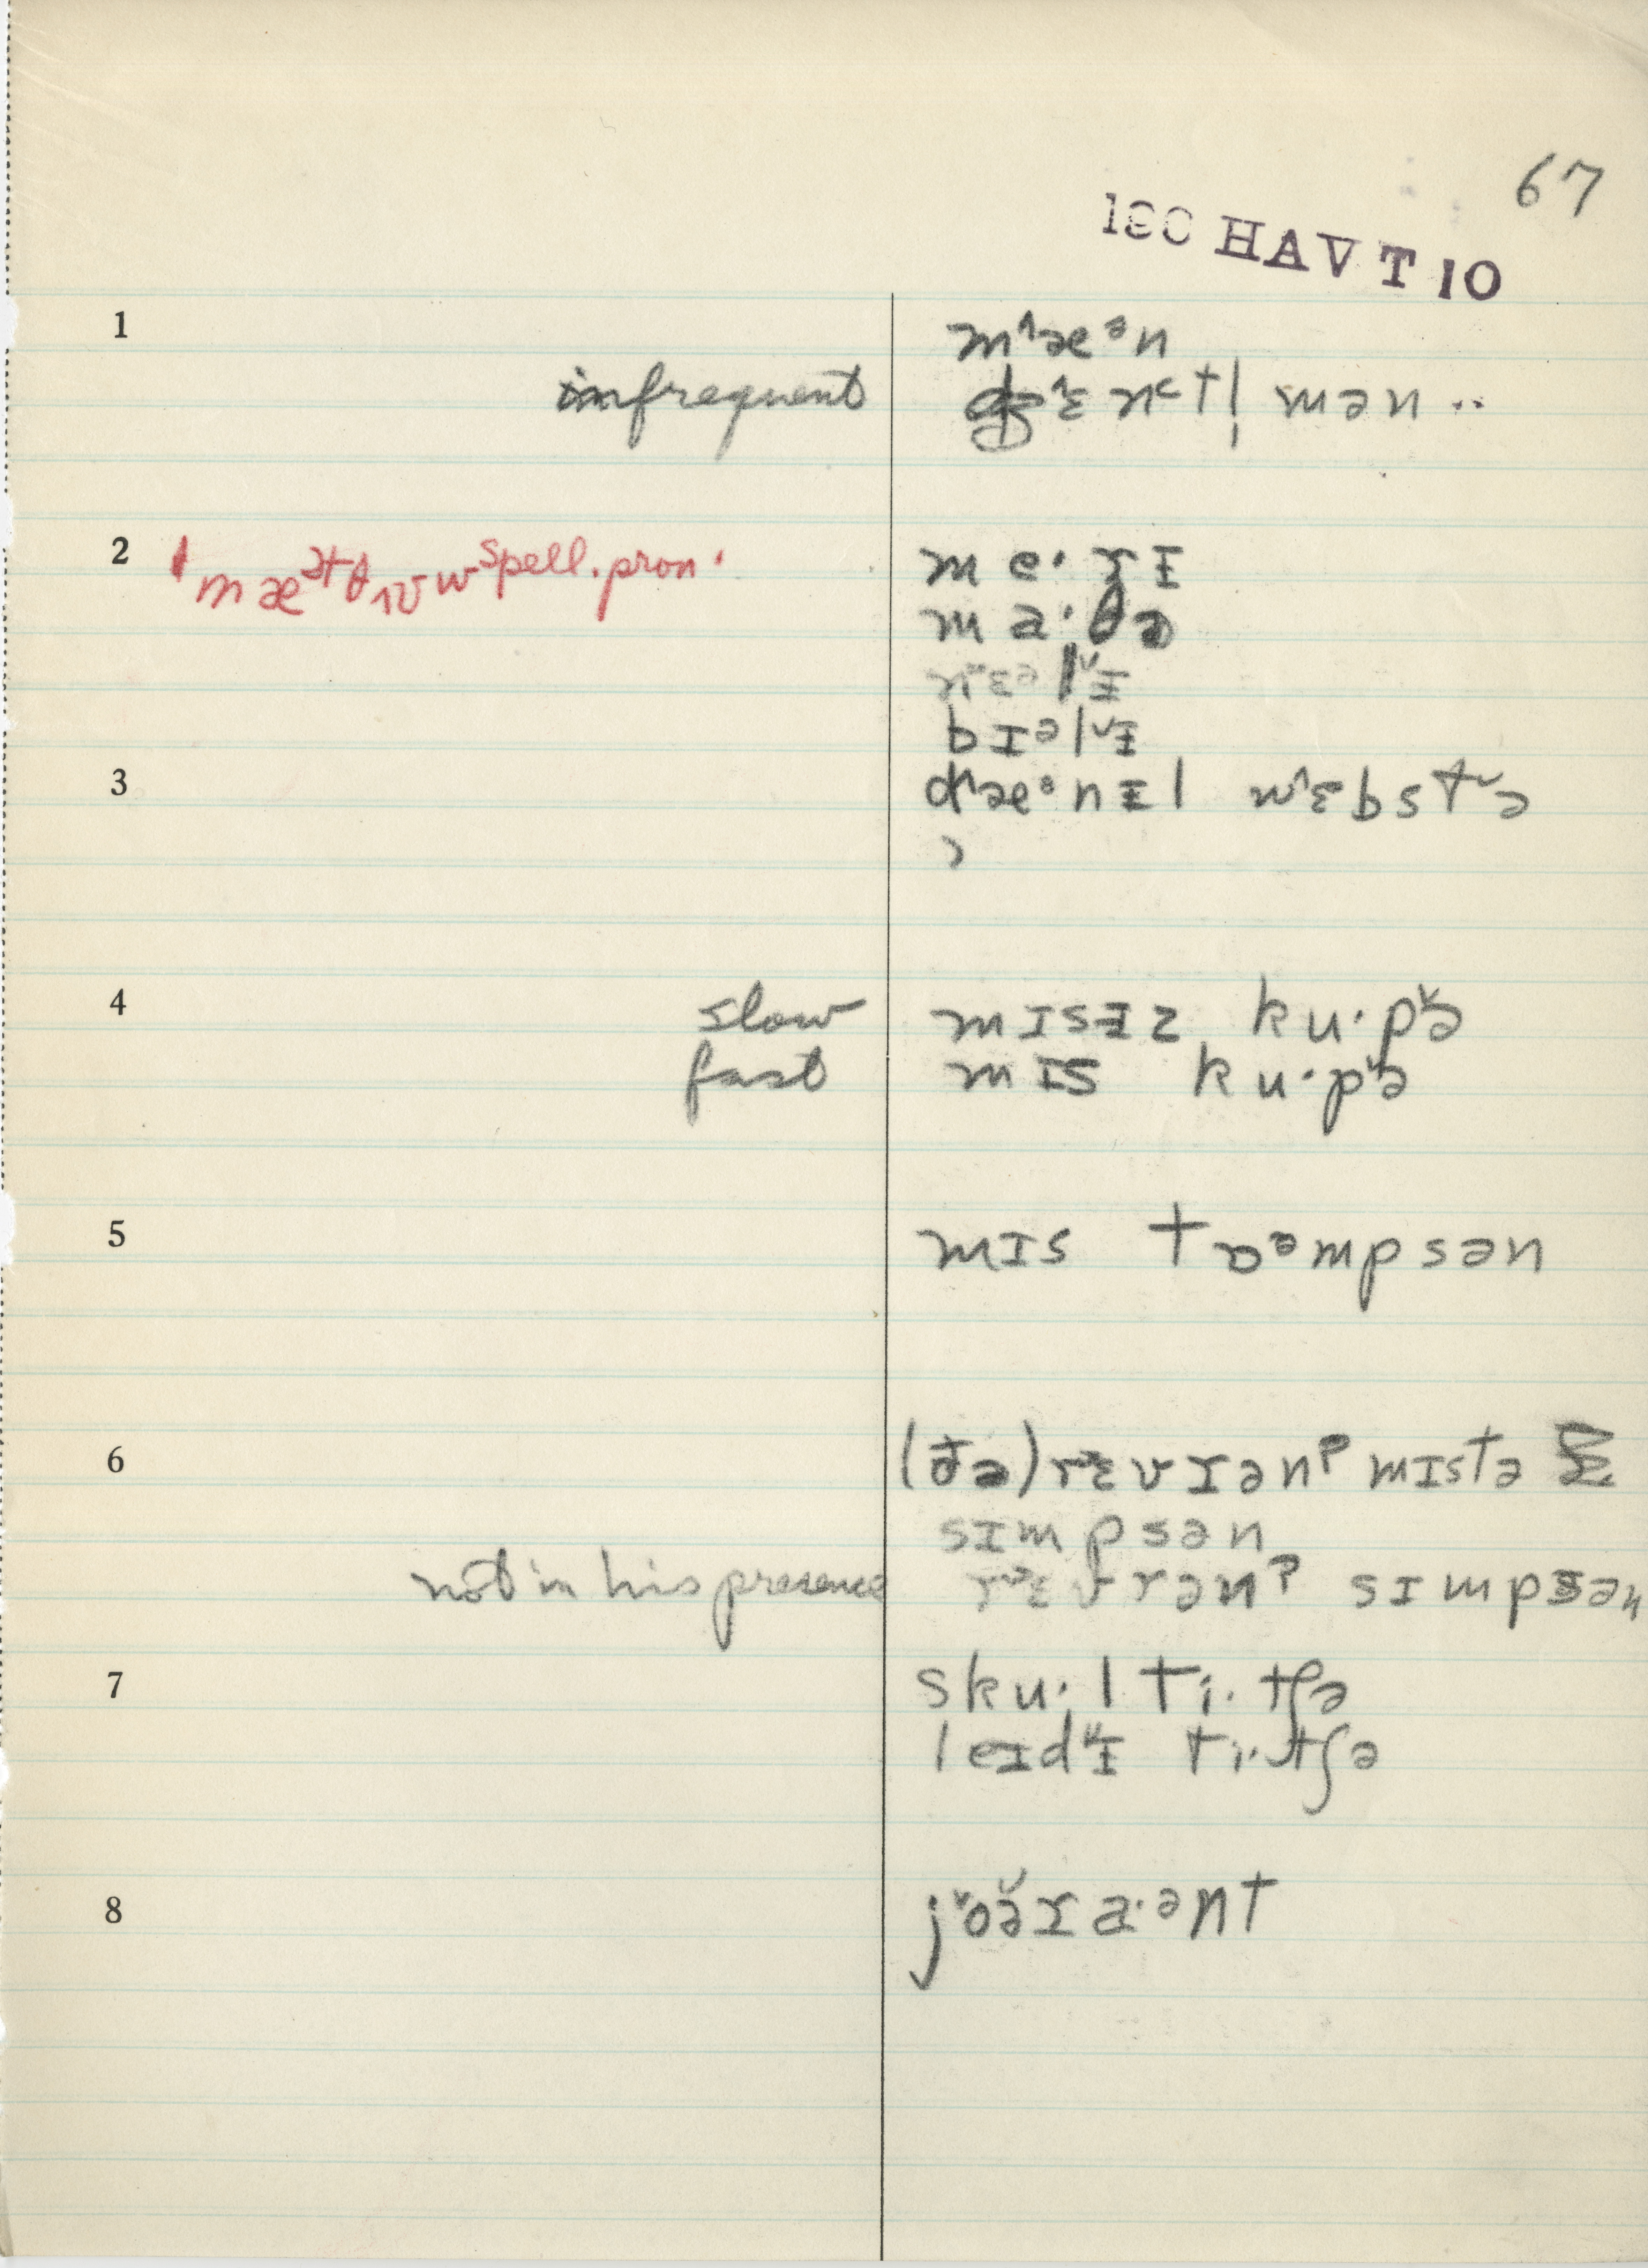 67
180 HAV T 10
1
m^æᵊn
infrequent dʒ^ɛn˂tl̩ mən ..
2 ˈmæᵊtθɪʊw spell. pron.
me·ɾɪ
ma·θə
nˇɛəlˇɨ
bɪᵊlˇɨ
3 d^æᵊnɨl w^ɛbstˇə
4 slow mɪsɨz ku·pˇə
fast mɪs ku·pˇə
5 mɪs tɒᵊmpsən
6 (ðə) rˇɛvɪən mɪstə
sɪmpsən
not in his presence rˇɛvrən sɪmpsən
7 sku·l ti·tʃə
leɪdˇɨ ti·tʃə
8 jˇoə̌r a·ənt